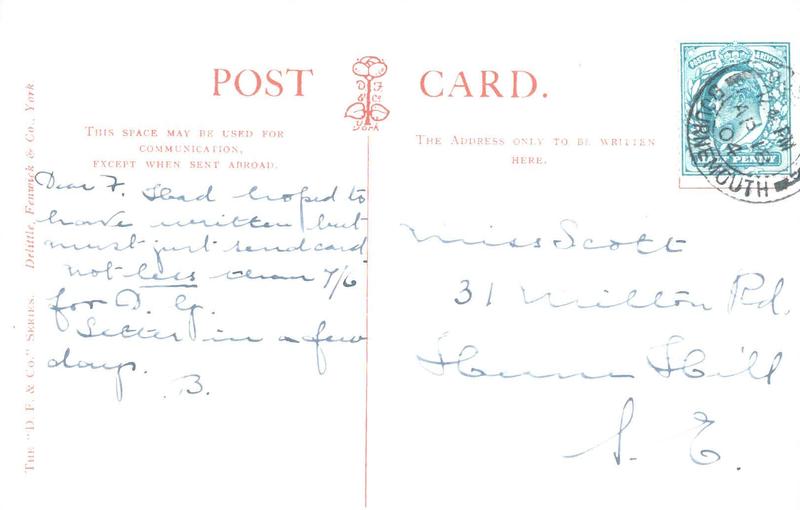 POST CARD.
D F
& Co
York
THIS SPACE MAY BE USED FOR
COMMUNICATION,
EXCEPT WHEN SENT ABROAD.
THE ADDRESS ONLY TO BE WRITTEN
HERE.
POSTAGE
HALF PENNY
BOURNEMOUTH
04
Dear F. Had hoped to
have written but
must just send card
not less than 7/6
for D. G.
Letter in a few
days.
B.
Miss Scott
31 Milton Rd.
Herne Hill
S. E.
THE "D. F. & CO." SERIES. Delittle, Fenwick & Co., York